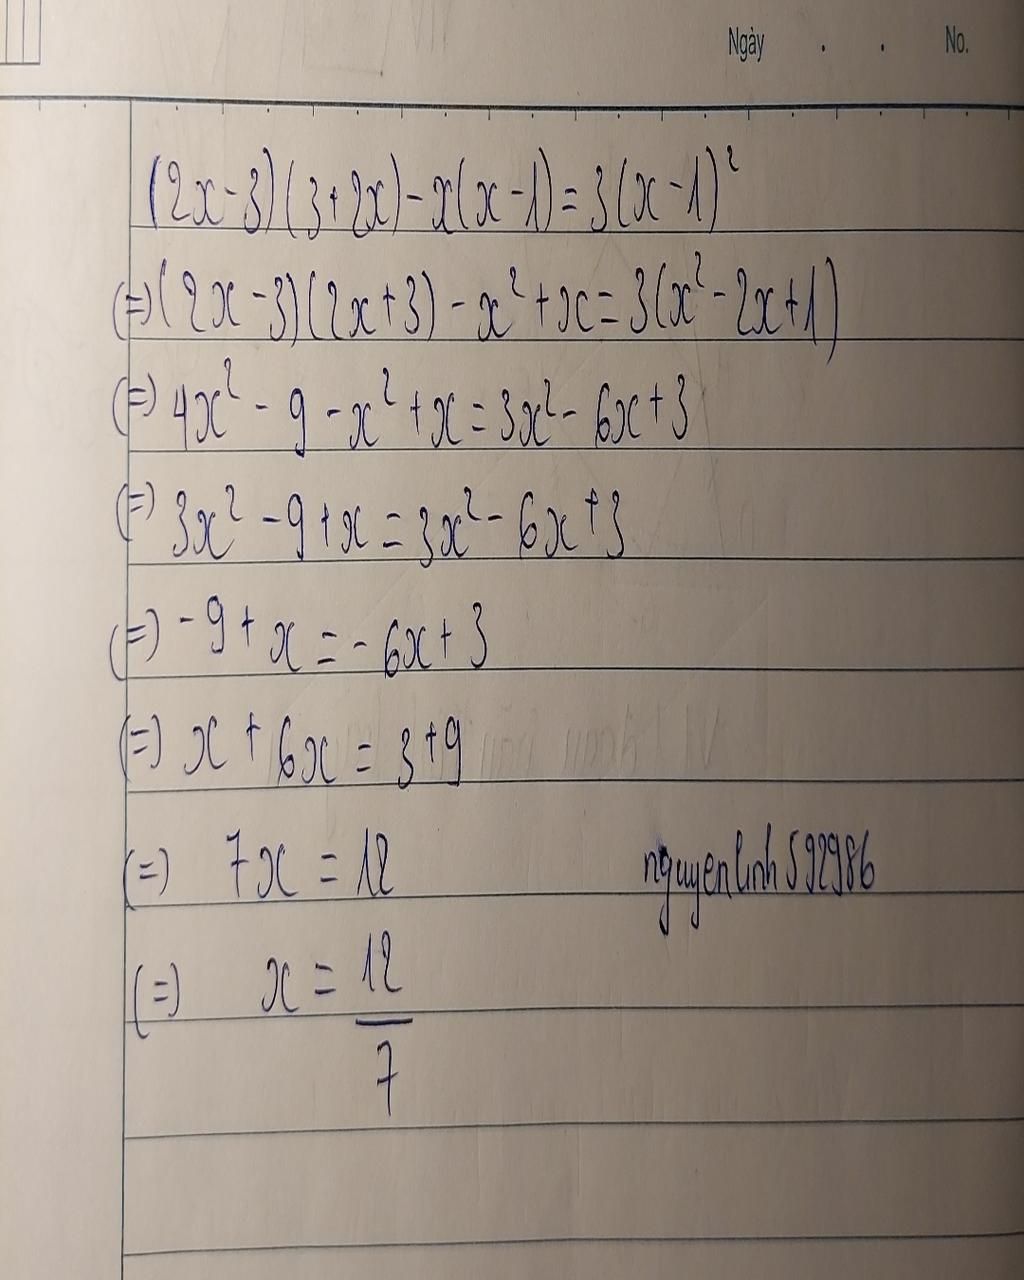 Ngày . . No.
(2x-3)(3+2x)-x(x-1)=3(x-1)²
(=)(2x-3)(2x+3)-x²+x=3(x²-2x+1)
(=) 4x²-9-x²+x=3x²-6x+3
(=) 3x²-9+x=3x²-6x+3
(=) -9+x=-6x+3
(=) x+6x=3+9
(=) 7x=12 nguyenlinh592986
(=) x=12/7